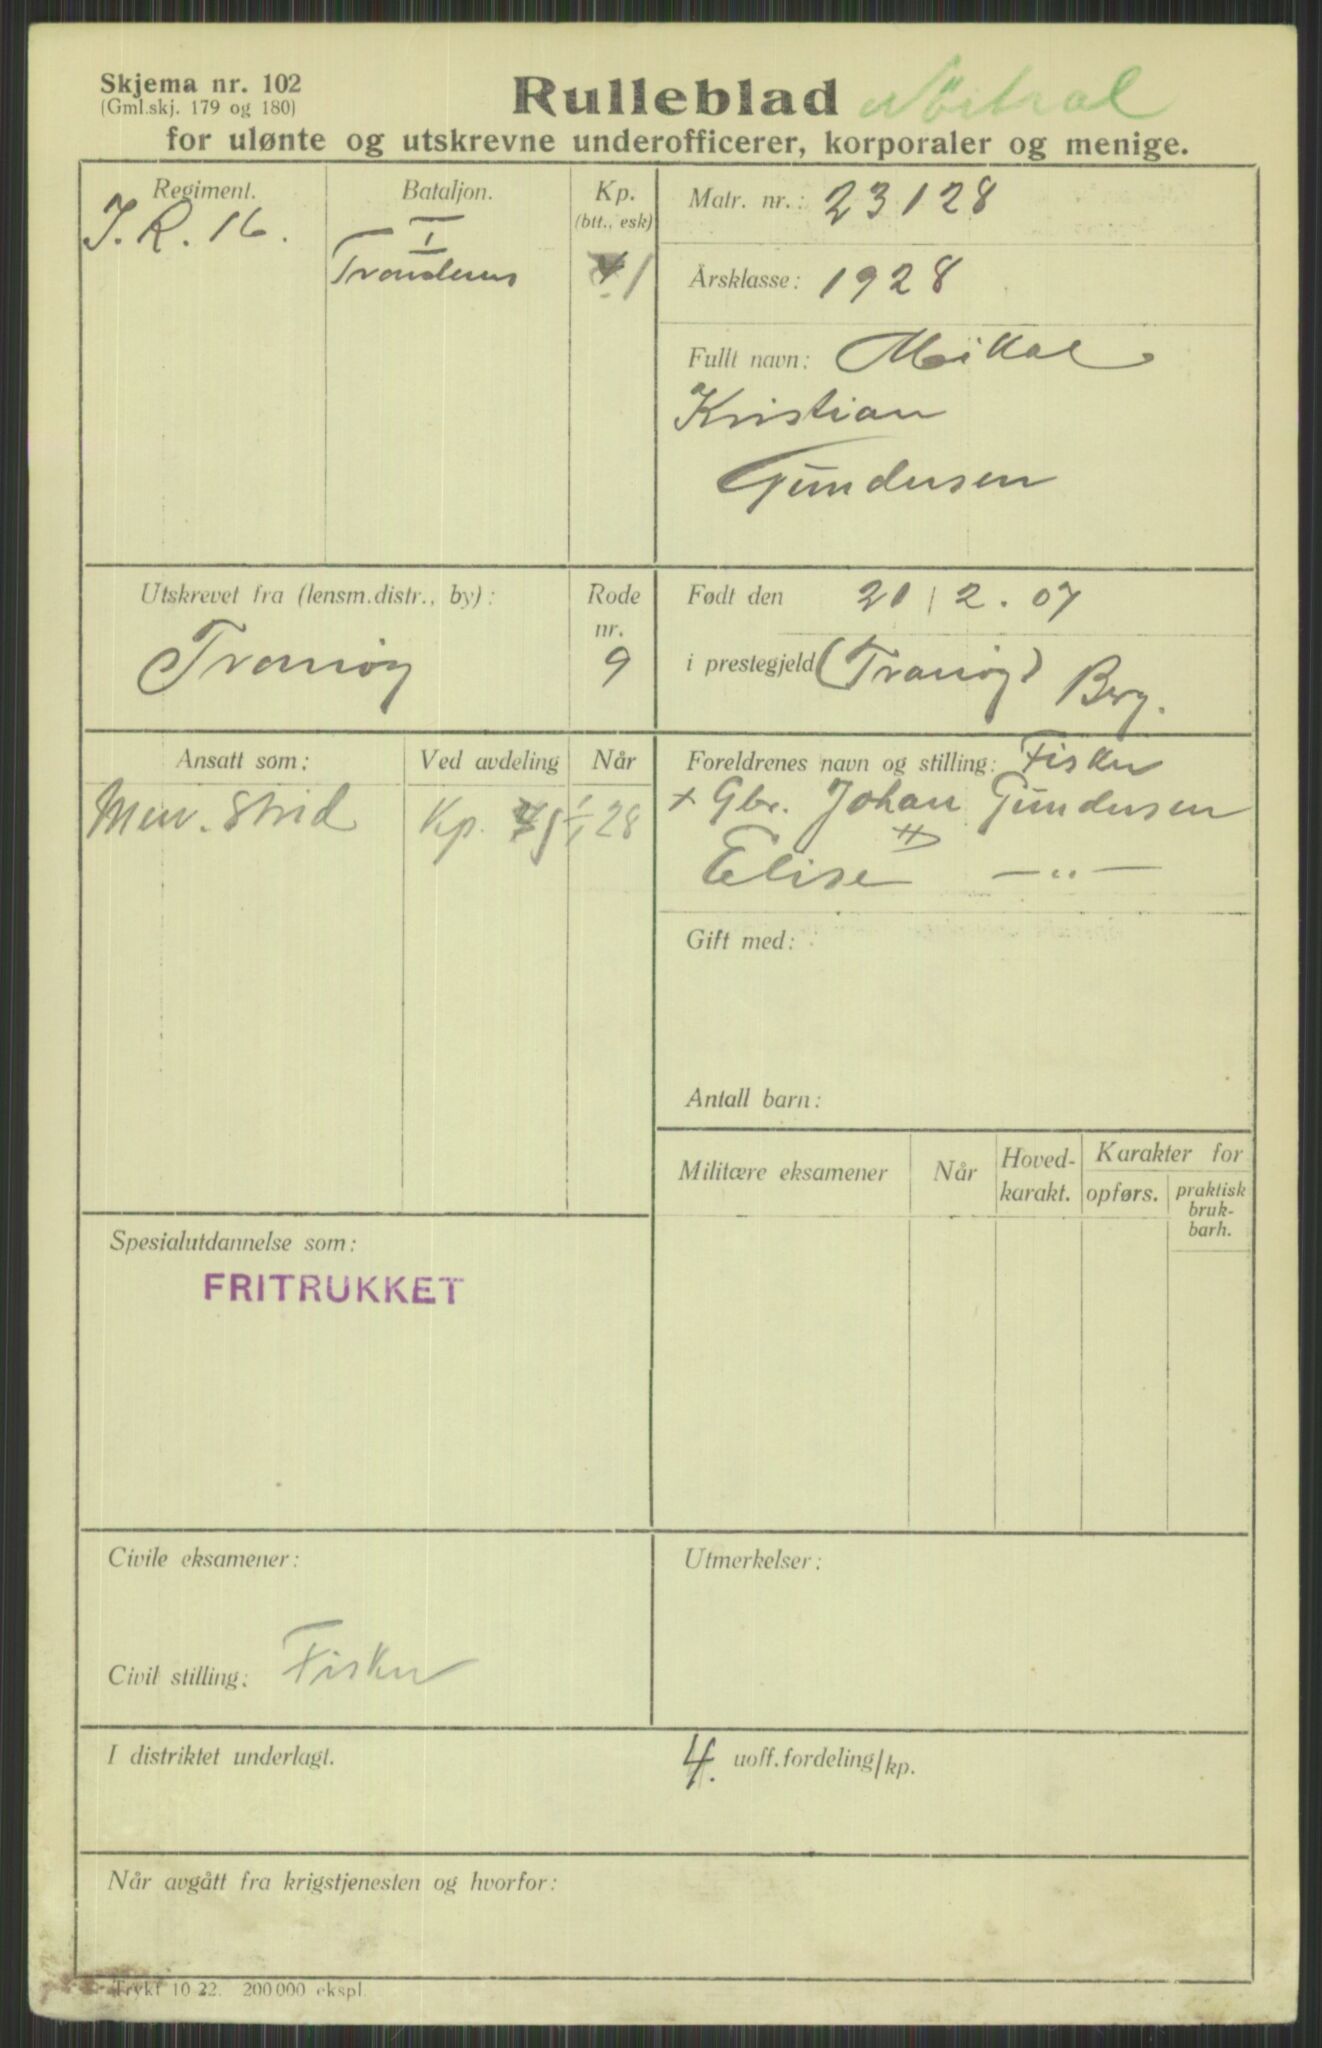 Skjema nr. 102
(Gml.skj. 179 og 180)
Rulleblad
for ulønte og utskrevne underofficerer, korporaler og menige.
Regiment.
J. R. 16.
Bataljon.
I
Trondenes
Kp.
(btt., esk)
1
Matr. nr.: 23128
Årsklasse: 1928
Fullt navn: Mikal
Kristian
Gundersen
Utskrevet fra (lensm.distr., by):
Tranøy
Rode
nr.
9
Født den 21/2. 07
i prestegjeld (Tranøy) Berg.
Ansatt som: Ved avdeling Når
Men. Strid Kp. 1 1/1 28
Foreldrenes navn og stilling: Fisker
+ Gbr. Johan Gundersen
Elise — „ —
Gift med:
Antall barn:
Militære eksamener
Når
Hoved-
karakt.
Karakter for
opførs.
praktisk
bruk-
barh.
Spesialutdannelse som:
FRITRUKKET
Civile eksamener:
Civil stilling: Fisker
Utmerkelser:
I distriktet underlagt.
4. uoff.fordeling/kp.
Når avgått fra krigstjenesten og hvorfor:
Trykt 10 22. 200 000 ekspl.